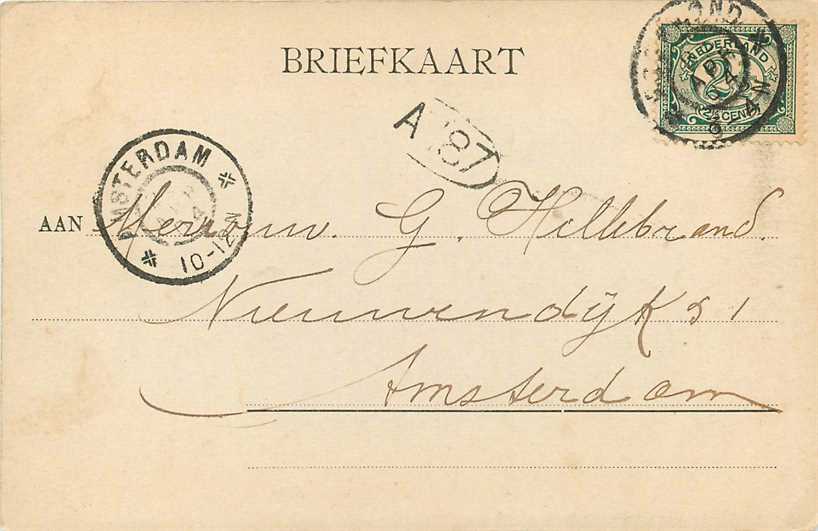 BRIEFKAART
NEDERLAND
2½ CENT
A 187
AMSTERDAM
10-12N
AAN Mevrouw. G. Hillebrand.
Nieuwendijk 51
Amsterdam